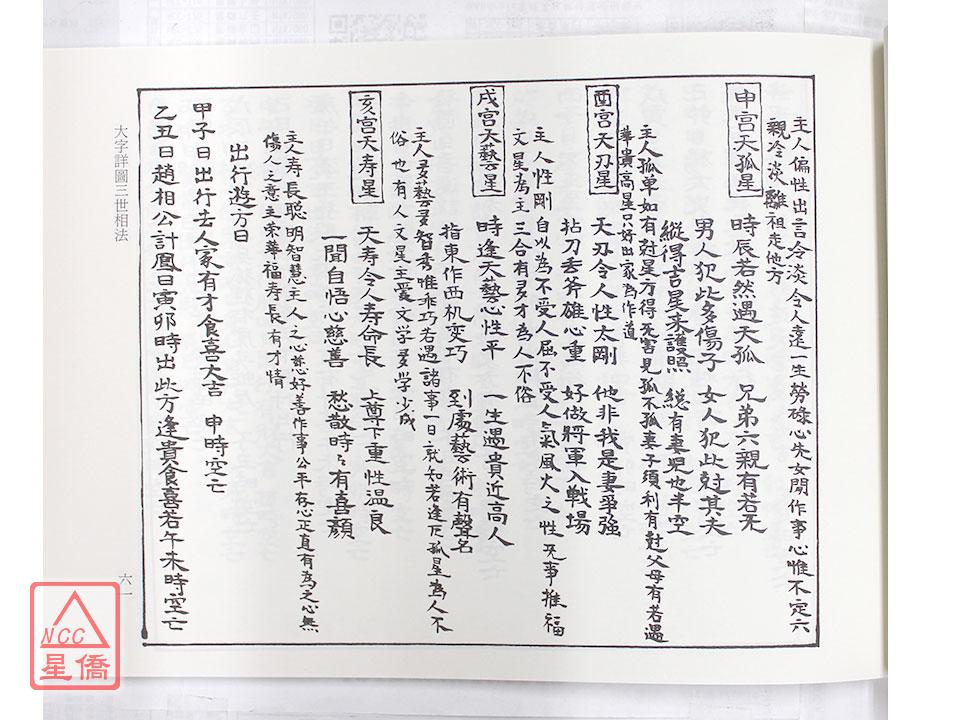 主人偏性出言冷淡令人遠一生勞碌心先女閗作事心惟不定六
親冷淡離祖走他方
申宮天孤星
時辰若然遇天孤　兄弟六親有若旡
男人犯此多傷子　女人犯此尅其夫
縱得吉星來護照　縂有妻児也半空
主人孤单如有尅星方得旡害見孤不孤妻子須利有尅父母有若遇
華貴高星只好出家為作道
酉宮天刃星
天刃令人性太剛　他非我是妻爭強
拈刀丢斧雄心重　好做將軍入戦場
主人性剛自以為不受人屈不受人氣風火之性旡事推福
文星為主三合有多才為人不俗
戌宮天藝星
時逢天藝心性平　一生遇貴近高人
指東作西机変巧　到處藝術有聲名
主人多藝多智秀唯乖巧若遇諸事一日就知若逢厄孤星為人不
俗也有人文星主愛文学多学少成
亥宮天寿星
天寿令人寿命長　上尊下重性温良
一聞自悟心慈善　愁散時々有喜顔
主人寿長聪明智慧主人之心慈好善作事公平存心正直有為之心無
傷人之意主荣華福寿長有才情
出行遊方日
甲子日出行去人家有才食喜大吉　申時空亡
乙丑日趙相公計鳳日寅卯時出此方逢貴食喜若午未時空亡
大字詳圖三世相法
六一
NCC
星僑